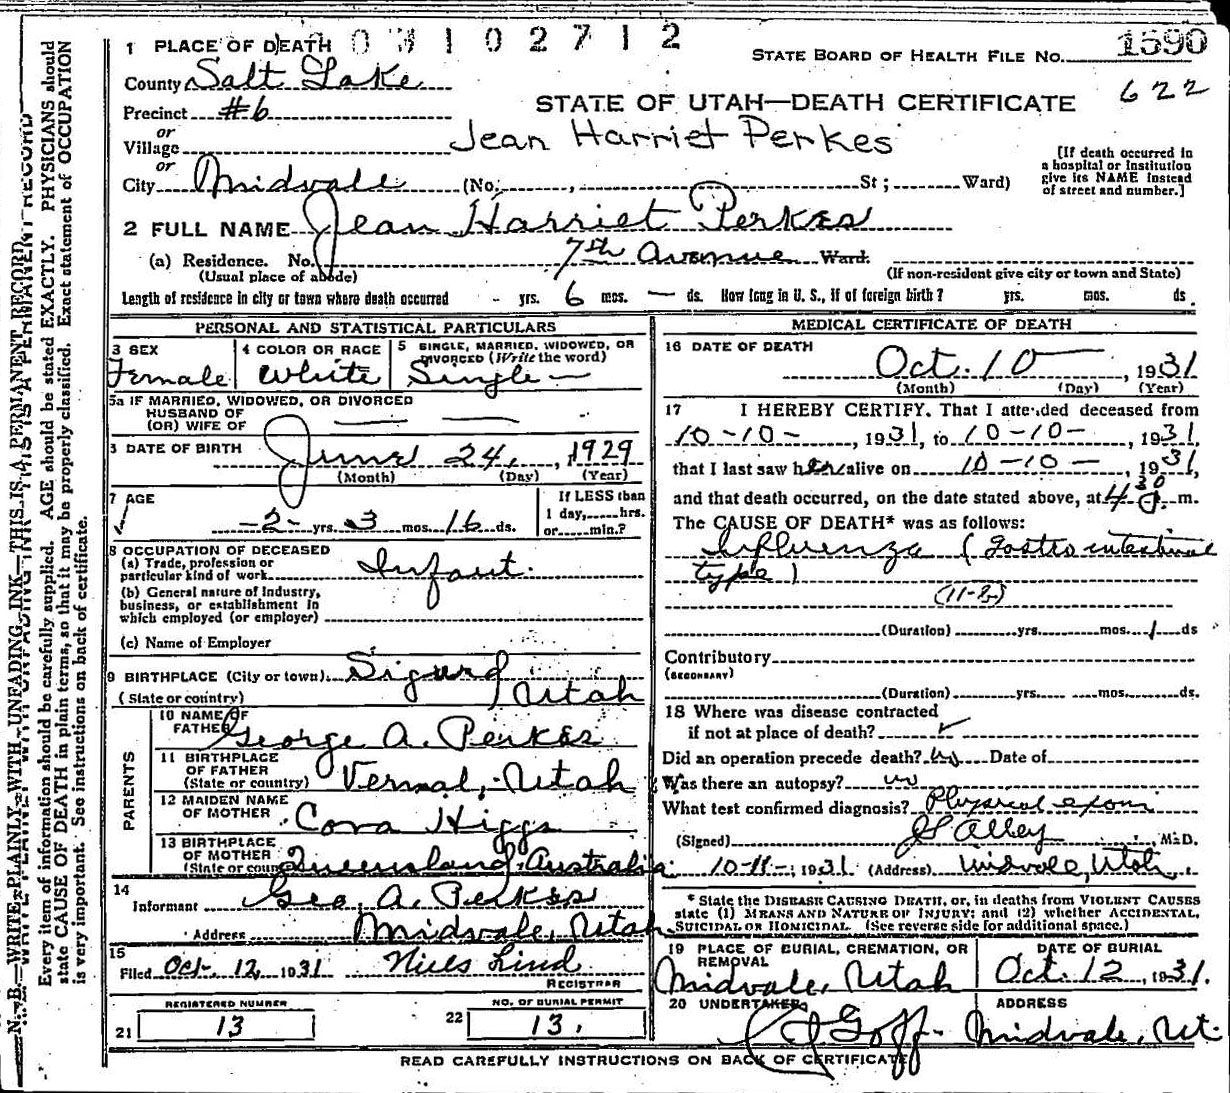 1 PLACE OF DEATH 0 3 1 0 2 7 1 2
STATE BOARD OF HEALTH FILE No. 1590
County Salt Lake
622
STATE OF UTAH—DEATH CERTIFICATE
Precinct #6
or
Village
Jean Harriet Perkes
or
City Midvale (No. , St ; Ward)
[If death occurred in
a hospital or institution
give its NAME instead
of street and number.]
2 FULL NAME Jean Harriet Perkes
(a) Residence. No. 7th Avenue Ward.
(Usual place of abode) (If non-resident give city or town and State)
Length of residence in city or town where death occurred - yrs. 6 mos. — ds. How long in U. S., if of foreign birth? yrs. mos. ds.
PERSONAL AND STATISTICAL PARTICULARS
3 SEX
Female
4 COLOR OR RACE
White
5 SINGLE, MARRIED, WIDOWED, OR
DIVORCED (Write the word)
Single —
5a IF MARRIED, WIDOWED, OR DIVORCED
HUSBAND OF
(OR) WIFE OF — —
DATE OF BIRTH
June 24, 1929
(Month) (Day) (Year)
7 AGE
-2- yrs. 3 mos. 16 ds.
If LESS than
1 day, hrs.
or min.?
8 OCCUPATION OF DECEASED
(a) Trade, profession or
particular kind of work Infant.
(b) General nature of Industry,
business, or establishment in
which employed (or employer)
(c) Name of Employer
9 BIRTHPLACE (City or town) Sigurd
(State or country) Utah
PARENTS
10 NAME OF
FATHER George A. Perkes
11 BIRTHPLACE
OF FATHER
(State or country) Vernal, Utah
12 MAIDEN NAME
OF MOTHER Cora Higgs
13 BIRTHPLACE
OF MOTHER
(State or country) Queensland, Australia
14
Informant Geo. A. Perkes
Address Midvale, Utah
15
Filed Oct. 12, 1931 Niels Lind
REGISTRAR
REGISTERED NUMBER
21 13
NO. OF BURIAL PERMIT
22 13.
MEDICAL CERTIFICATE OF DEATH
16 DATE OF DEATH
Oct. 10 , 1931
(Month) (Day) (Year)
17 I HEREBY CERTIFY, That I attended deceased from
10-10- , 1931, to 10-10- , 1931,
that I last saw her alive on 10-10- , 1931,
and that death occurred, on the date stated above, at 4 30 m.
The CAUSE OF DEATH* was as follows:
Influenza (Gastro intestinal
type)
(Duration) yrs. mos. 1 ds
Contributory
(SECONDARY)
(Duration) yrs. mos. ds.
18 Where was disease contracted
if not at place of death?
Did an operation precede death? no Date of
Was there an autopsy? no
What test confirmed diagnosis? Physical exam
(Signed) Alley M.D.
10-11-, 1931 (Address) Midvale, Utah.
* State the DISEASE CAUSING DEATH, or, in deaths from VIOLENT CAUSES
state (1) MEANS AND NATURE OF INJURY; and (2) whether ACCIDENTAL,
SUICIDAL OR HOMICIDAL. (See reverse side for additional space.)
19 PLACE OF BURIAL, CREMATION, OR
REMOVAL
Midvale, Utah
DATE OF BURIAL
Oct. 12, 1931.
20 UNDERTAKER
Goff-
ADDRESS
Midvale, Ut.
READ CAREFULLY INSTRUCTIONS ON BACK OF CERTIFICATE
N. B.—WRITE PLAINLY WITH UNFADING INK—THIS IS A PERMANENT RECORD
Every item of information should be carefully supplied. AGE should be stated EXACTLY. PHYSICIANS should
state CAUSE OF DEATH in plain terms, so that it may be properly classified. Exact statement of OCCUPATION
is very important. See instructions on back of certificate.